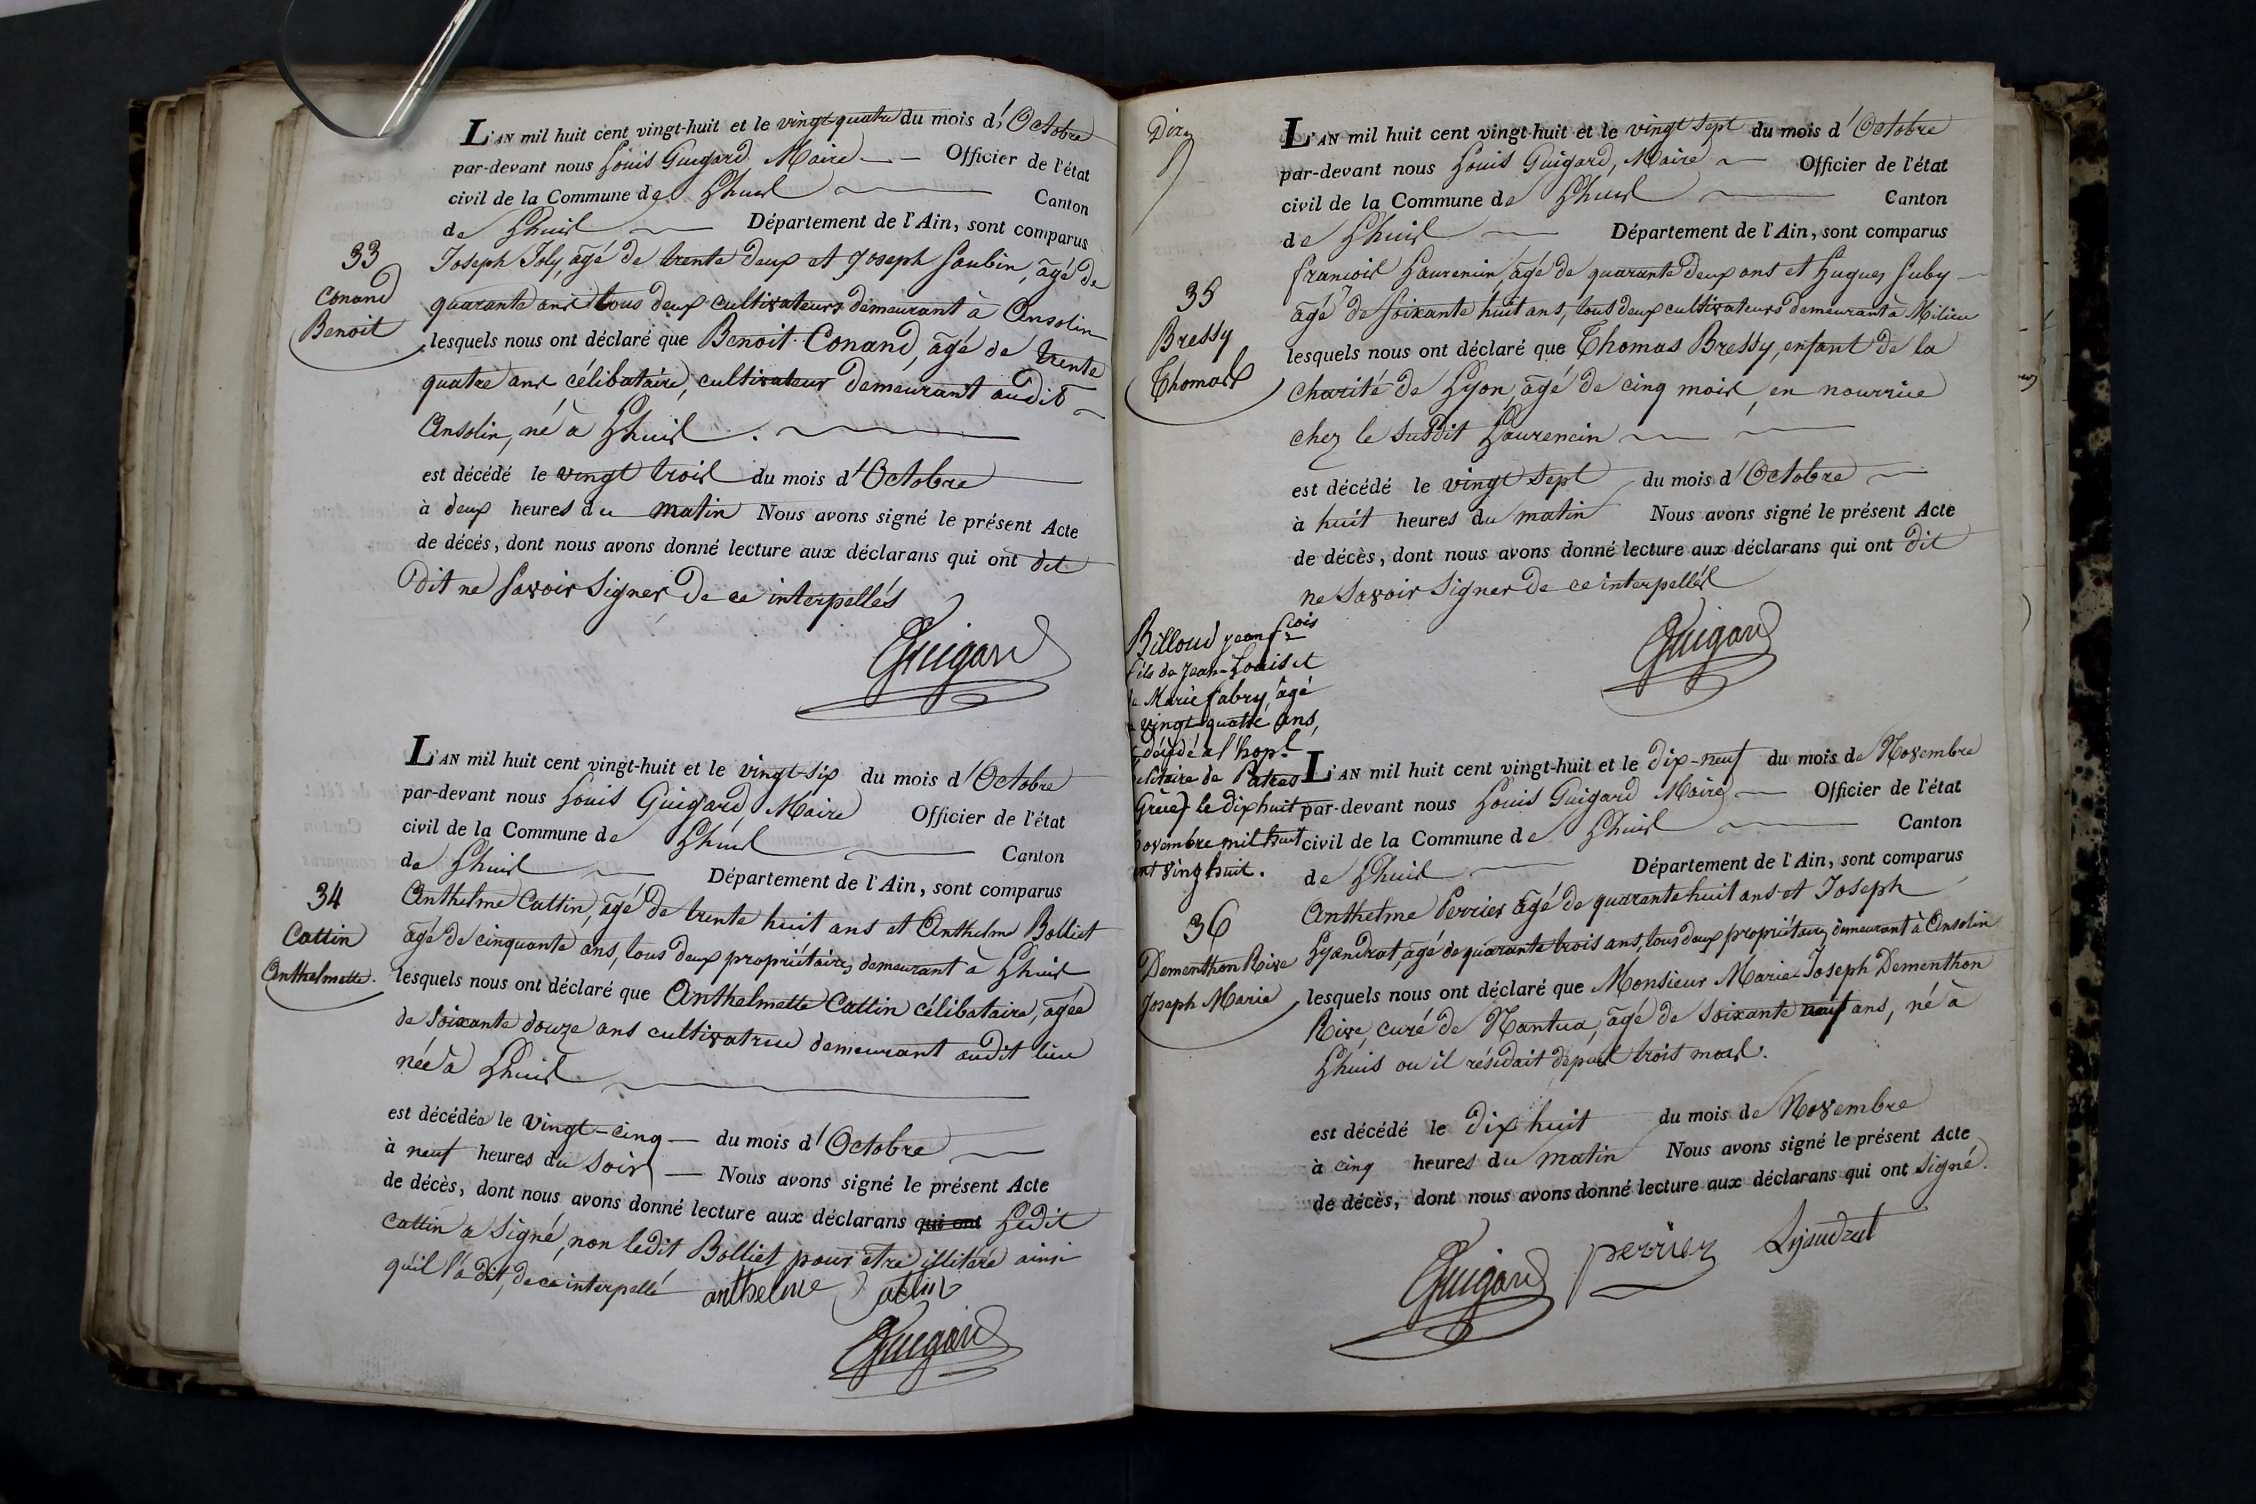 L'AN mil huit cent vingt-huit et le vingt quatre du mois d'Octobre
par-devant nous Louis Guigard Maire Officier de l'état
civil de la Commune de Lhuis Canton
de Lhuis Département de l'Ain, sont comparus
33
Conand
Benoit
Joseph Joly, âgé de trente deux et Joseph Soubin, âgé de
quarante ans tous deux cultivateurs demeurant à Ansolin
lesquels nous ont déclaré que Benoit Conand, âgé de trente
quatre ans célibataire, cultivateur demeurant audit
Ansolin, né à Lhuis.
est décédé le vingt trois du mois d'Octobre
à deux heures du matin Nous avons signé le présent Acte
de décés, dont nous avons donné lecture aux déclarans qui ont dit
dit ne savoir signer de ce interpellés
Guigard
L'AN mil huit cent vingt-huit et le vingt-six du mois d'Octobre
par-devant nous Louis Guigard Maire Officier de l'état
civil de la Commune de Lhuis Canton
de Lhuis Département de l'Ain, sont comparus
34
Cattin
Anthelmette.
Anthelme Cattin, âgé de trente huit ans et Anthelme Bolliet
âgé de cinquante ans, tous deux propriétaires demeurant à Lhuis
lesquels nous ont déclaré que Anthelmette Cattin célibataire, âgée
de soixante douze ans cultivatrice demeurant audit lieu
née à Lhuis
est décédée le vingt-cinq du mois d'Octobre
à neuf heures du soir Nous avons signé le présent Acte
de décès, dont nous avons donné lecture aux déclarans qui ont Ledit
Cattin a signé, non ledit Bolliet pour être illitéré ainsi
qu'il l'a dit, de ce interpellé anthelme Catin
Guigard
L'AN mil huit cent vingt-huit et le vingt sept du mois d'Octobre
par-devant nous Louis Guigard, Maire Officier de l'état
civil de la Commune de Lhuis Canton
de Lhuis Département de l'Ain, sont comparus
35
Bressy
Thomas
francois Laurencin, âgé de quarante deux ans et Hugues Juby
âgé de soixante huit ans, tous deux cultivateurs demeurant à Milieu
lesquels nous ont déclaré que Thomas Bressy, enfant de la
charité de Lyon, âgé de cinq mois, en nourrice
chez le susdit Laurencin
est décédé le vingt sept du mois d'Octobre
à huit heures du matin Nous avons signé le présent Acte
de décès, dont nous avons donné lecture aux déclarans qui ont dit
ne savoir signer de ce interpellés
Guigard
Billoud jean fcois
fils de Jean-Louis et
de Marie fabry, âgé
vingt quatre ans,
décédé à l'hopl
militaire de Patras
Grèce) le dix huit
novembre mil huit
cent ving huit.
L'AN mil huit cent vingt-huit et le dix-neuf du mois de Novembre
par-devant nous Louis Guigard Maire Officier de l'état
civil de la Commune de Lhuis Canton
de Lhuis Département de l'Ain, sont comparus
36
Dementhon Rive
Joseph Marie
Anthelme Perrier âgé de quarante huit ans et Joseph
Lyandrat, âgé de quarante trois ans, tous deux propriétaires demeurant à Ansolin
lesquels nous ont déclaré que Monsieur Marie Joseph Dementhon
Rive, curé de Nantua, âgé de soixante neuf ans, né à
Lhuis ou il résidait depuis trois mois.
est décédé le dix huit du mois de Novembre
à cinq heures du matin Nous avons signé le présent Acte
de décès, dont nous avons donné lecture aux déclarans qui ont signé.
Guigard perrier